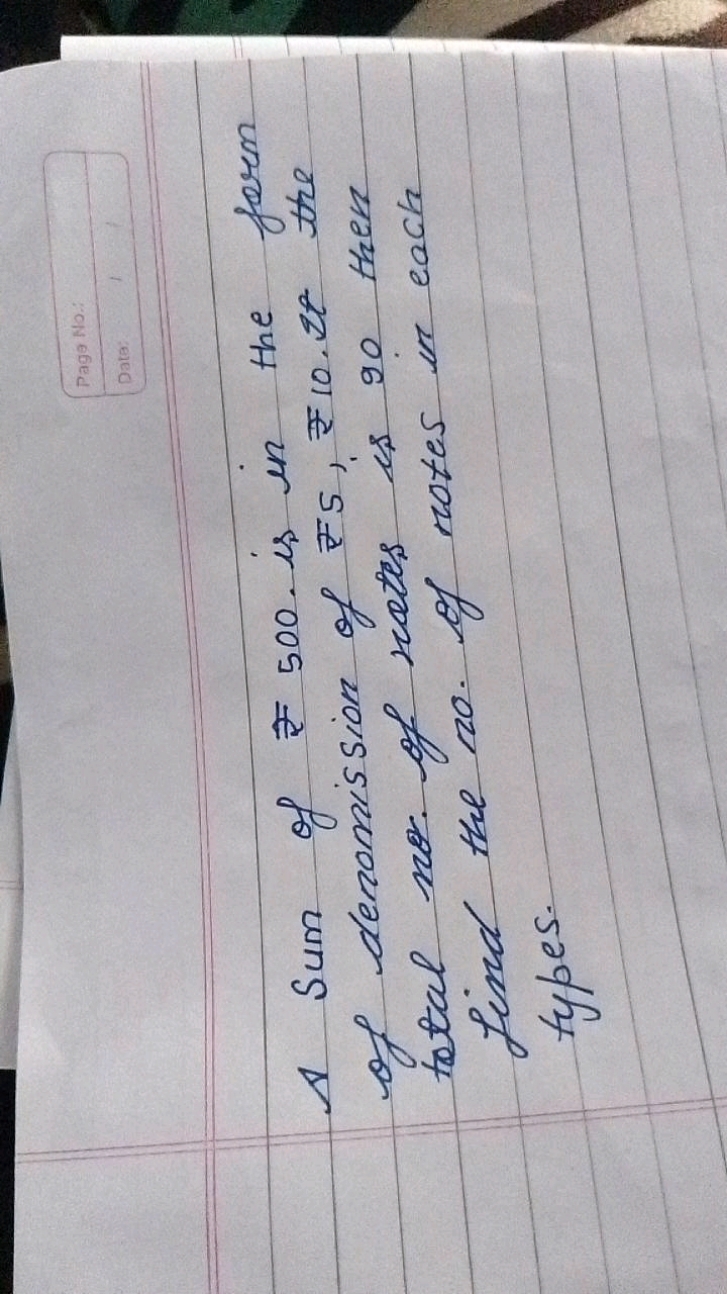 Page No.:
Date: / /
A Sum of ₹ 500. is in the form
of denomission of ₹5, ₹10. If the
total no. of notes is 90 then
find the no. of notes in each
types.